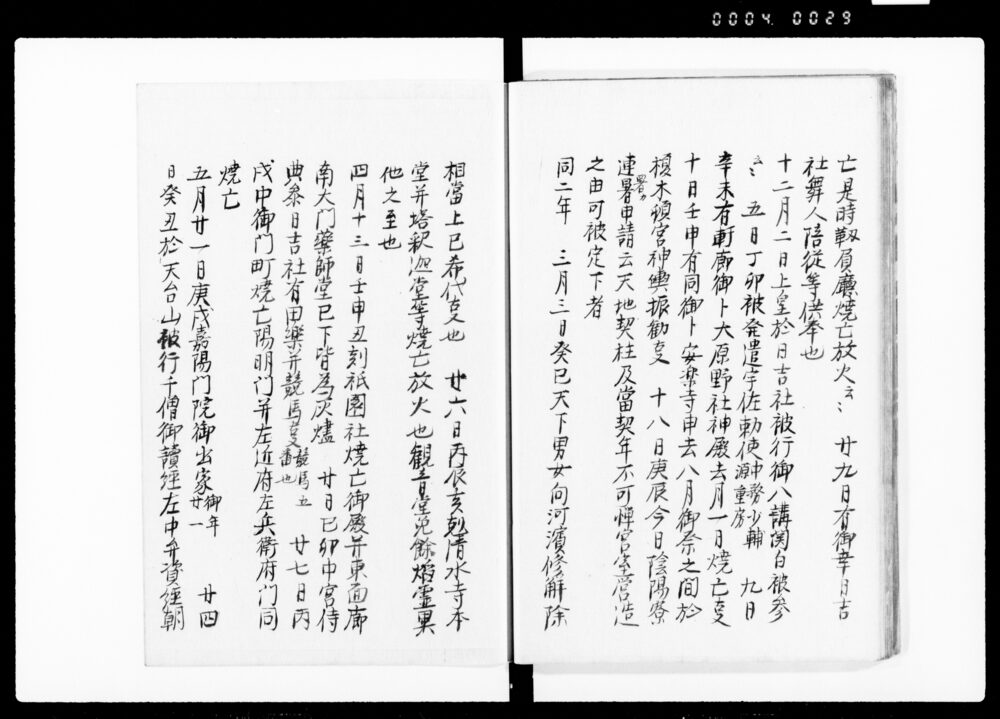 0004 0029
亡是時靱負廳焼亡放火云〻　廿九日有御幸日吉
社舞人陪従等供奉也
十二月二日上皇於日吉社被行御八講関白被参
云〻　五日丁卯被発遣宇佐勅使中務少輔源重房　九日
辛未有軒廊御卜大原野社神殿去月一日焼亡事
十日壬申有同御卜安楽寺申去八月御祭之間於
榎木頓宮神輿振動事　十八日庚辰今日陰陽寮
連署申請云天地契柱及當契年不可憚宮室営造
之由可被定下者
同二年　三月三日癸巳天下男女向河濱修解除
相當上巳希代事也　廿六日丙辰亥剋清水寺本
堂并塔釈迦堂等焼亡放火也観音堂免餘焔霊異
他之至也
四月十三日壬申丑刻祇園社焼亡御殿并東面廊
南大門薬師堂已下皆為灰燼　廿日己卯中宮侍
典参日吉社有田樂并競馬事競馬五番也　廿七日丙
戌中御門町焼亡陽明門并左近府左兵衛府門同
焼亡
五月廿一日庚戌嘉陽門院御出家御年廿一　廿四
日癸丑於天台山被行千僧御讀経左中弁資経朝